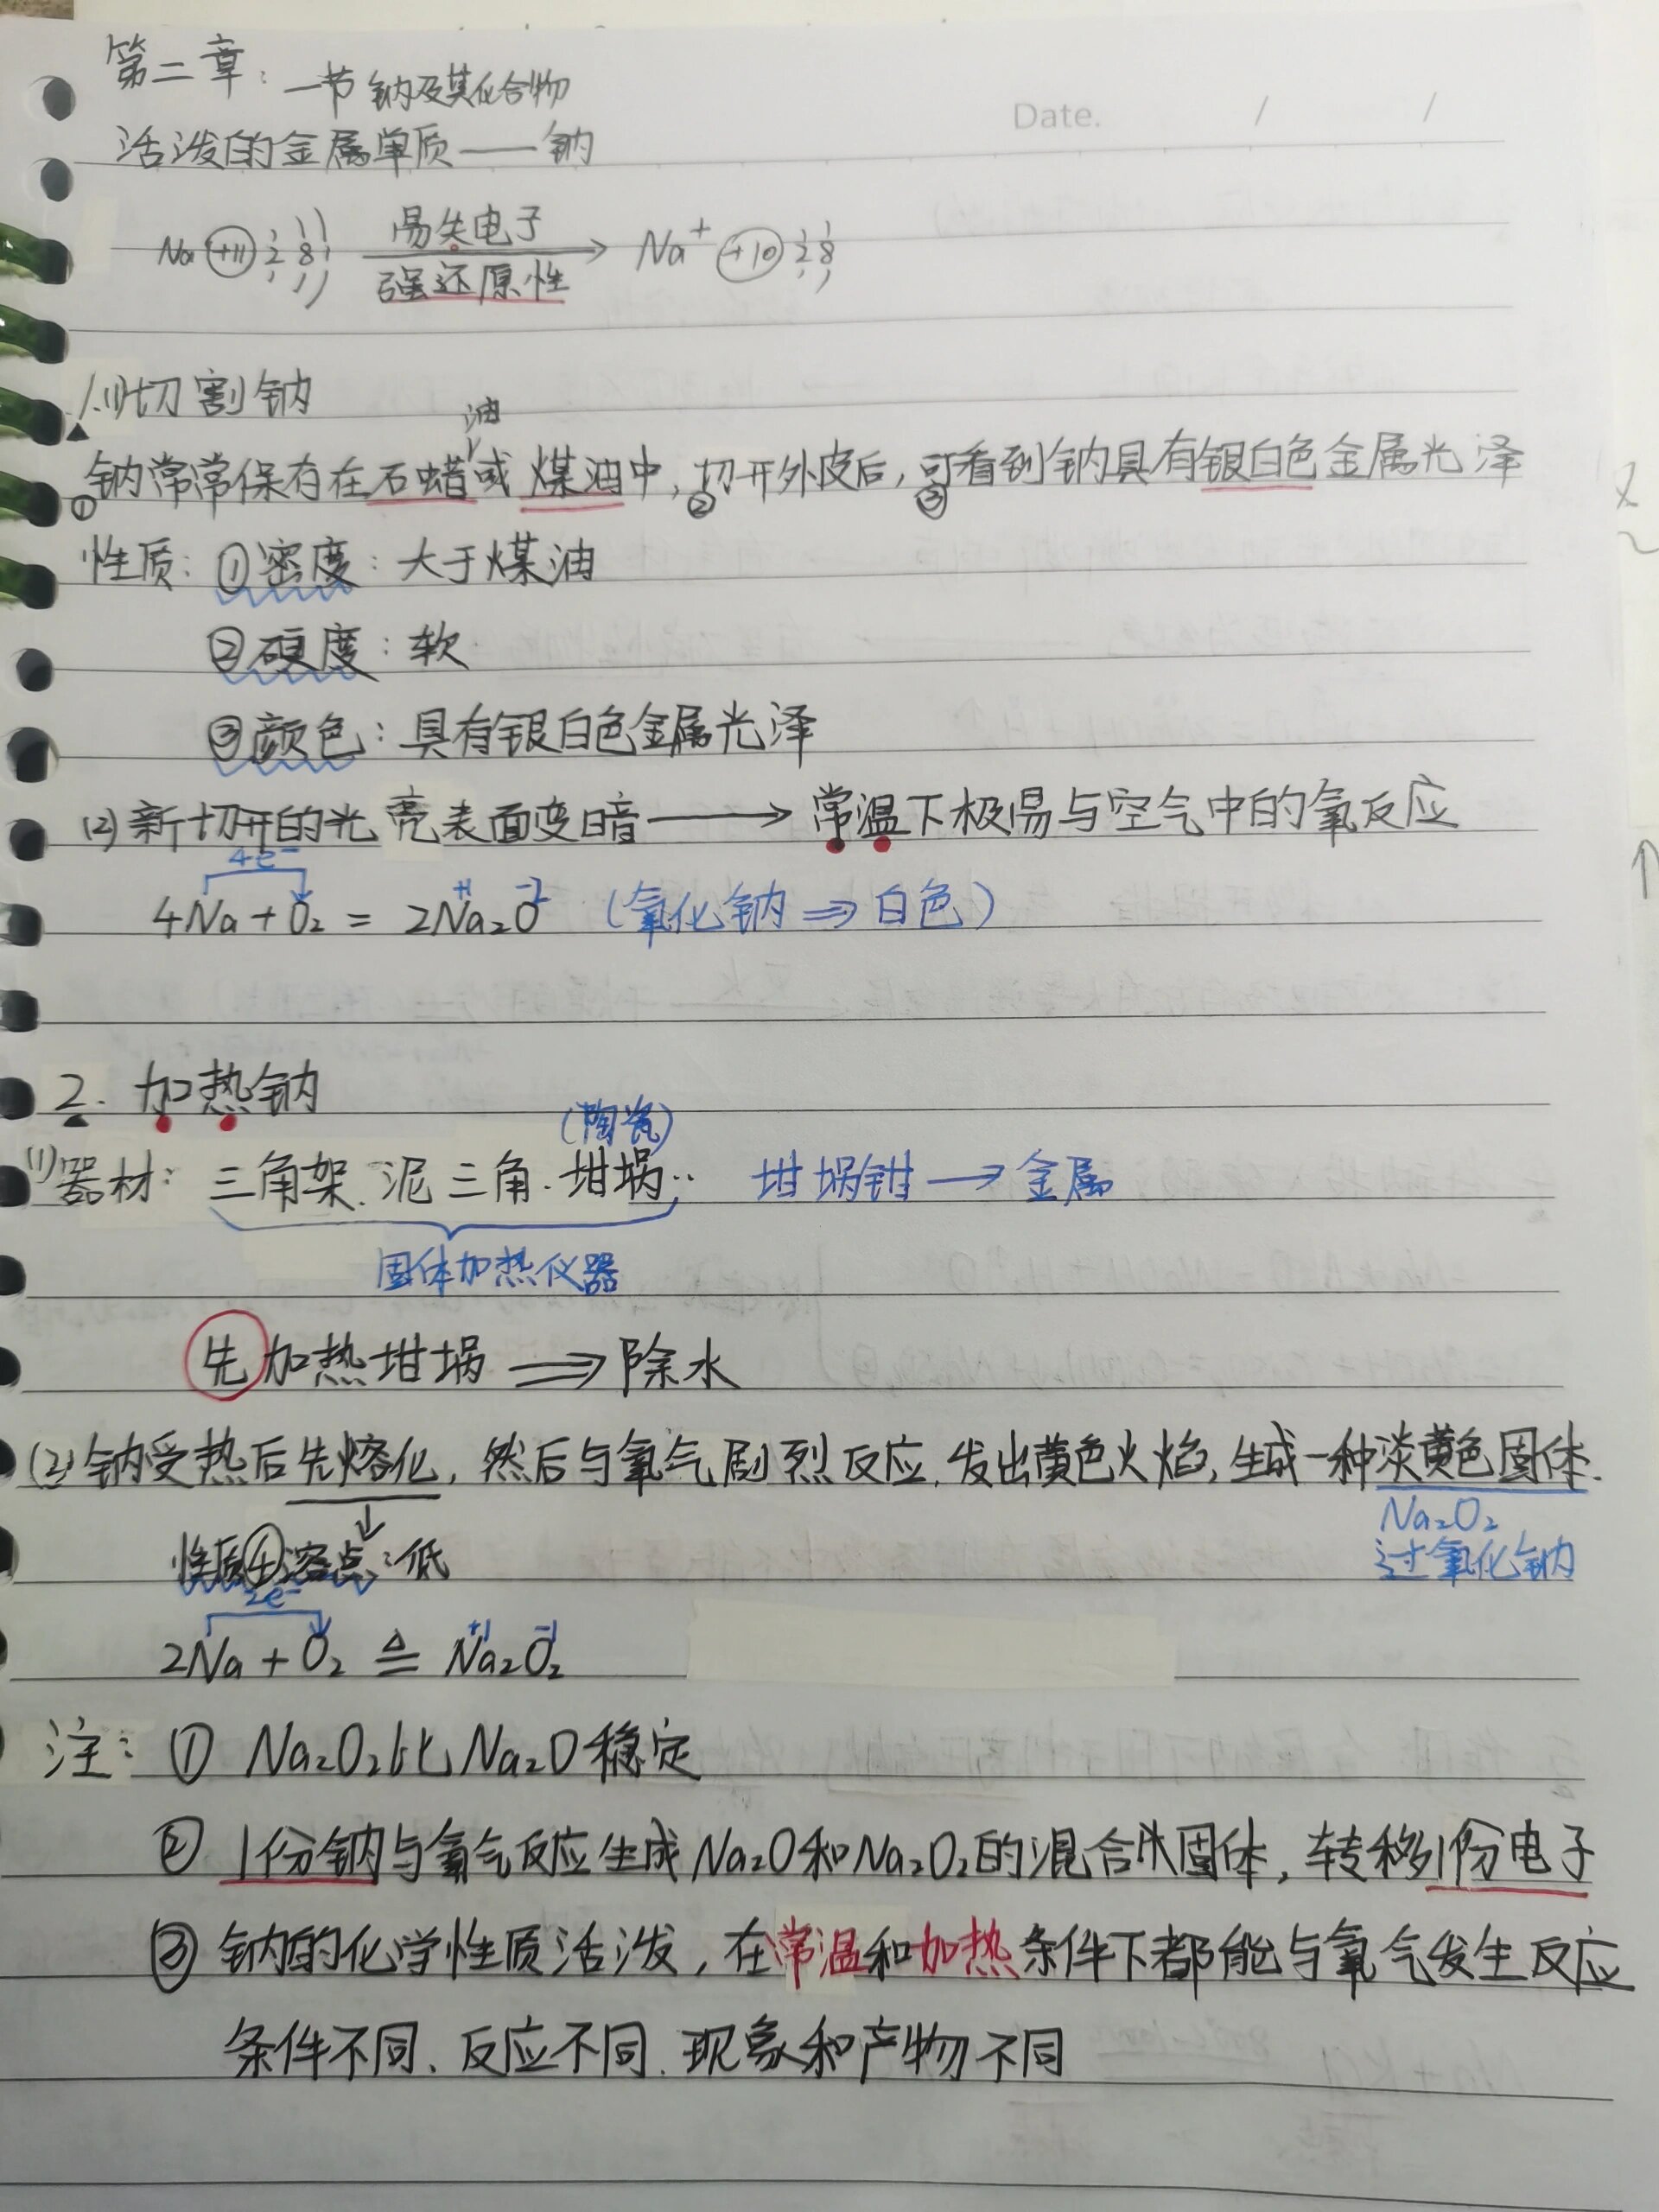 第二章：一节 钠及其化合物
Date. / /
活泼的金属单质——钠
Na +11 2 8 1 易失电子 强还原性 → Na⁺ +10 2 8
1.(1)切割钠
油
①钠常常保存在石蜡或煤油中，②切开外皮后，③可看到钠具有银白色金属光泽
性质：①密度：大于煤油
②硬度：软
③颜色：具有银白色金属光泽
(2)新切开的光亮表面变暗——→常温下极易与空气中的氧反应
4e⁻ +1 -2
4Na + O₂ = 2Na₂O （氧化钠⇒白色）
2. 加热钠
(陶瓷)
(1)器材：三角架.泥三角.坩埚.. 坩埚钳→金属
固体加热仪器
先加热坩埚⇒除水
(2)钠受热后先熔化，然后与氧气剧烈反应.发出黄色火焰，生成一种淡黄色固体.
↓
Na₂O₂
性质④溶点：低
过氧化钠
2e⁻ +1 -1
2Na + O₂ ≜ Na₂O₂
注：① Na₂O₂比Na₂O稳定
② 1份钠与氧气反应生成Na₂O和Na₂O₂的混合固体，转移1份电子
③ 钠的化学性质活泼，在常温和加热条件下都能与氧气发生反应
条件不同、反应不同.现象和产物不同